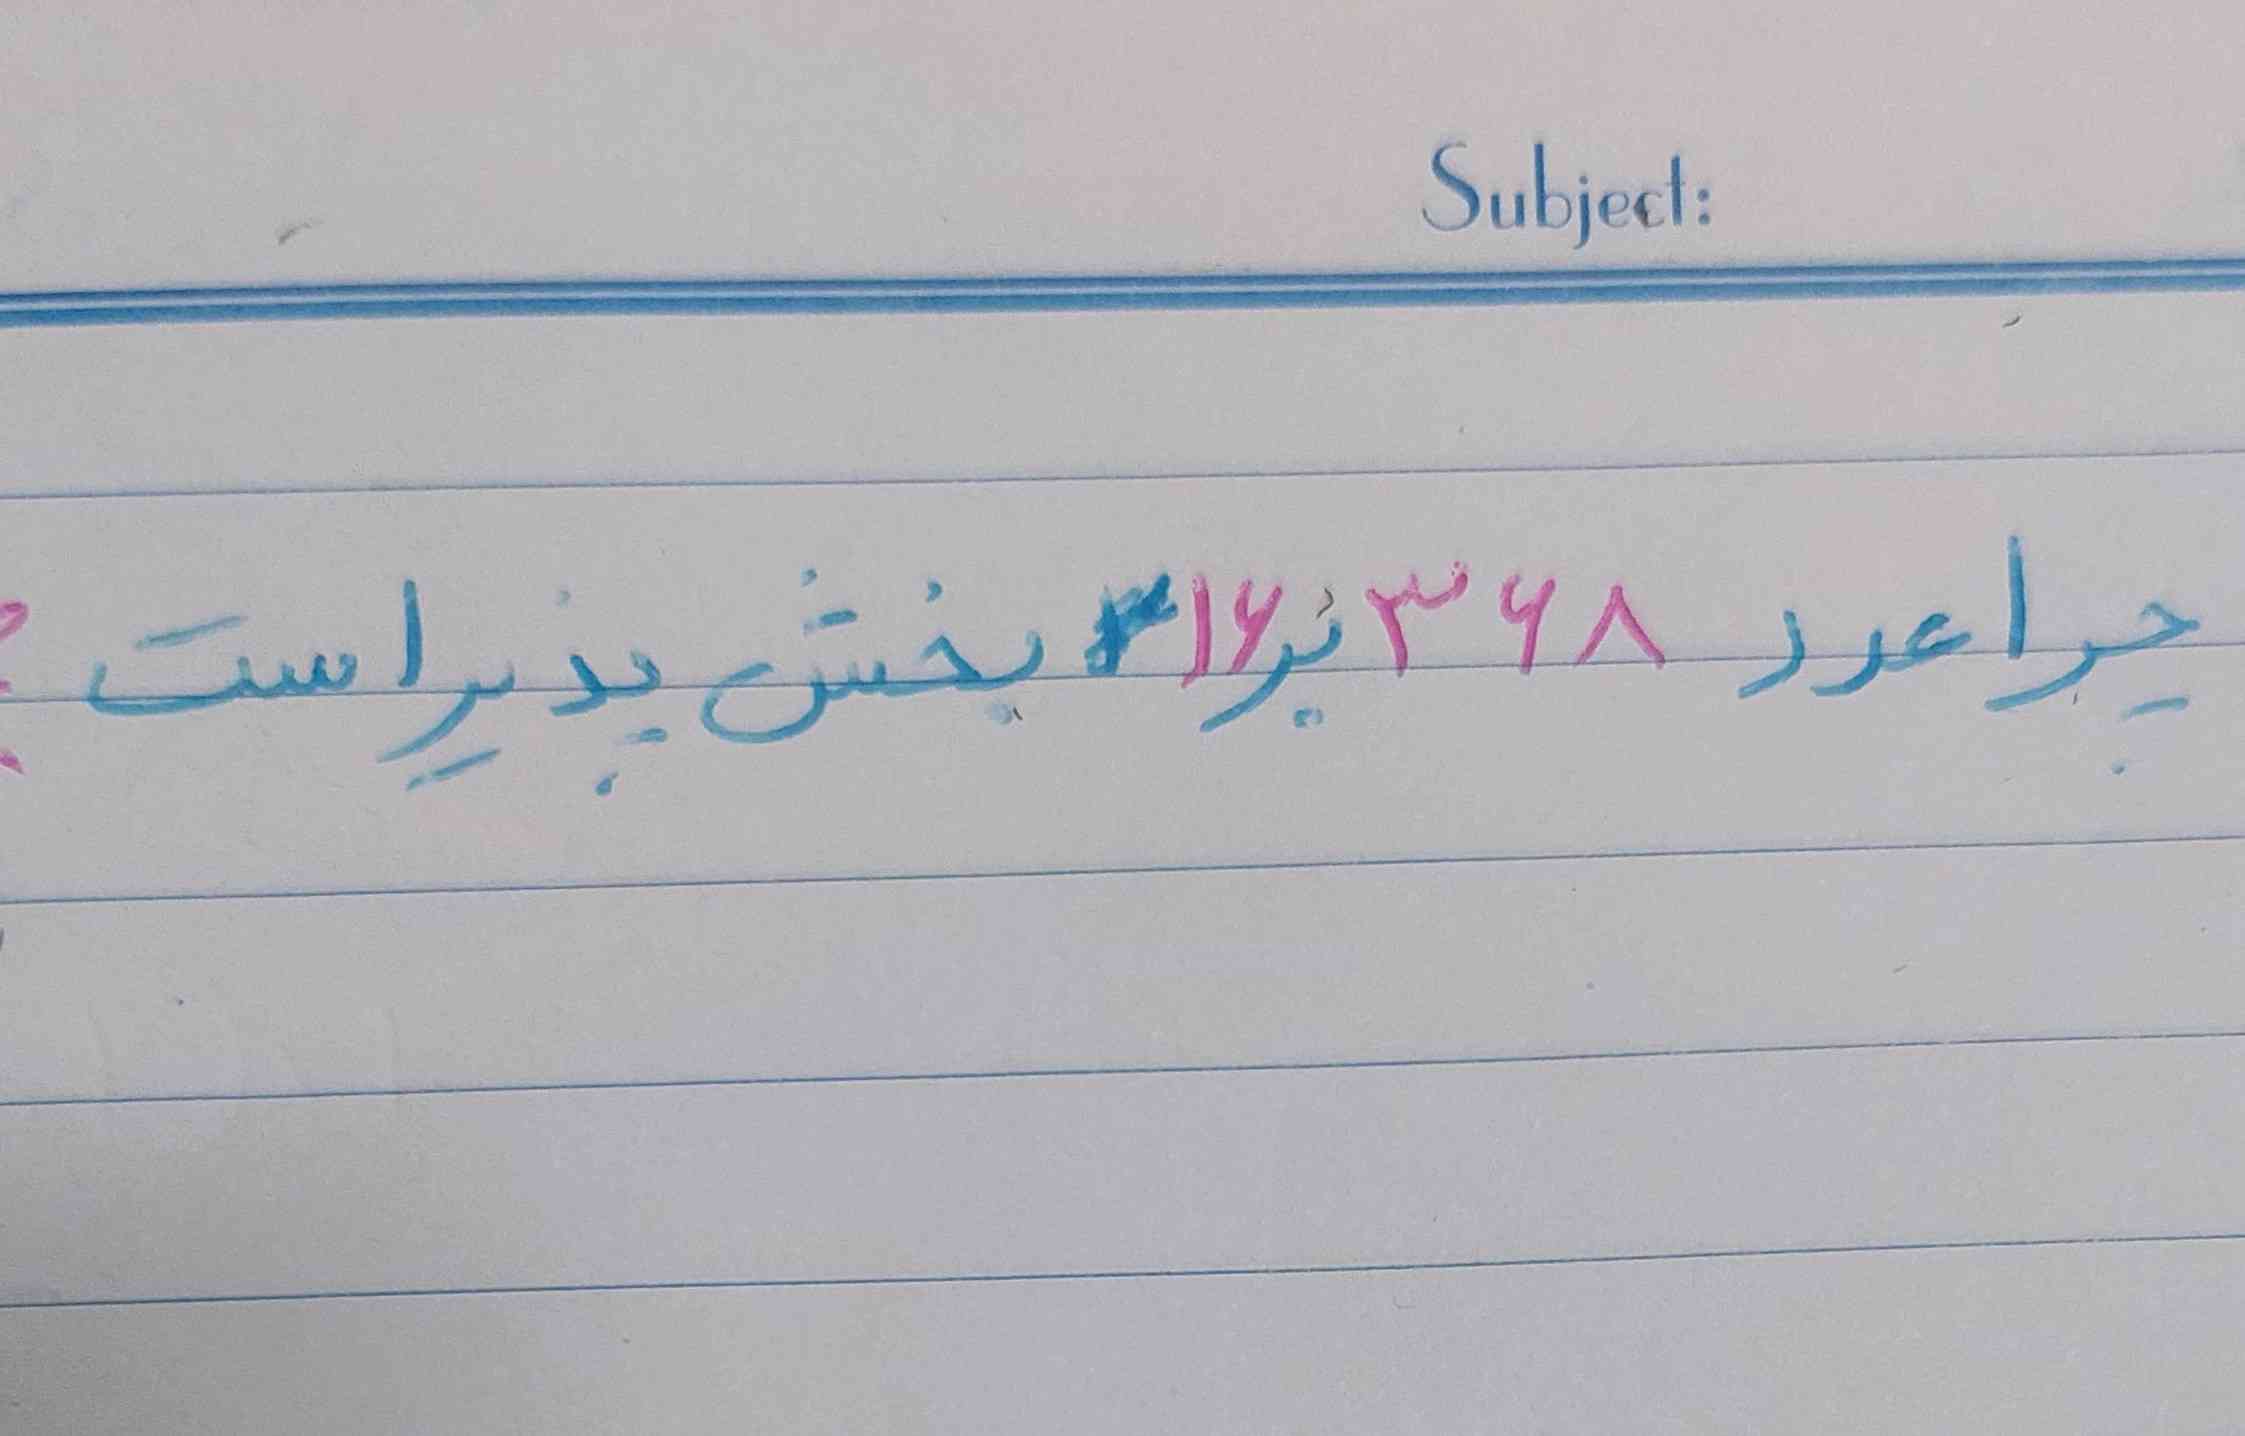 Subject:
چرا عدد ۳۶۸ بر ۱۶ بخش پذیر است ؟